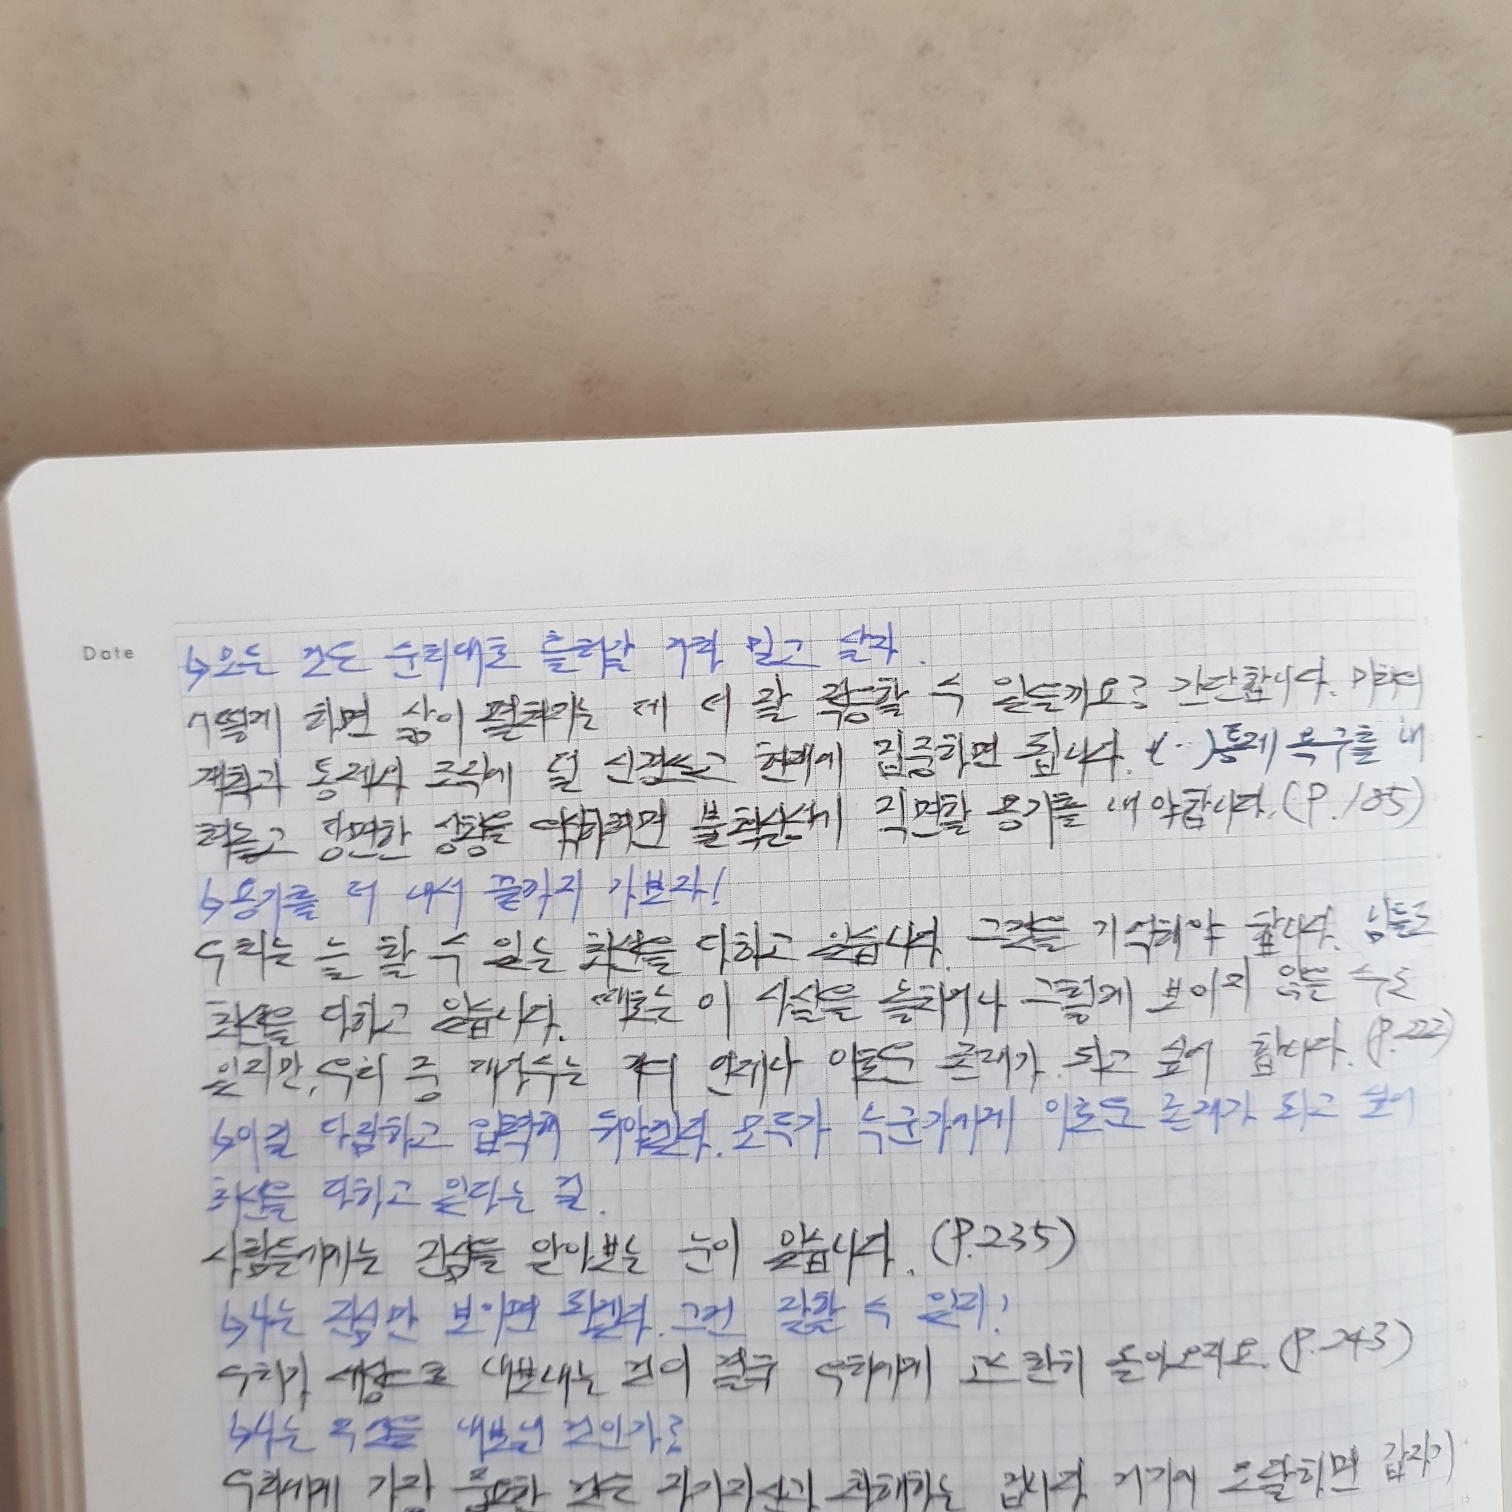 Date
↳모든 것은 순리대로 흘러갈 거라 믿고 살자.
어떻게 하면 삶이 펼쳐지는 데 더 잘 적응할 수 있을까요? 간단합니다. 미래의
계획과 통제와 조직에 덜 신경쓰고 현재에 집중하면 됩니다. (‥)통제 욕구를 내
려놓고 당면한 상황을 하려면 불확실성에 직면할 용기를 내야합니다. (P.185)
↳용기를 더 내서 끝까지 가보자!
우리는 늘 할 수 있는 최선을 다하고 있습니다. 그것을 기억해야 합니다. 남들도
최선을 다하고 있습니다. 때로는 이 사실을 놓치거나 그렇게 보이지 않을 수도
있지만, 우리 중 대다수는 거의 언제나 이로운 존재가 되고 싶어 합니다. (P.222)
↳이걸 다람하고 입력해 두어야겠다. 모두가 누군가에게 이로운 존재가 되고 싶어
최선을 다하고 있다는 걸.
사람들에게는 진심을 알아보는 눈이 있습니다. (P.235)
↳나는 진심만 보이면 되겠다. 그건 잘할 수 있지!
우리가 세상으로 내보내는 것이 결국 우리에게 고스란히 돌아오지요. (P.243)
↳나는 무엇을 내보낼 것인가?
우리에게 가장 중요한 것은 자기자신과 화해하는 겁니다. 거기에 도달하면 갑자기